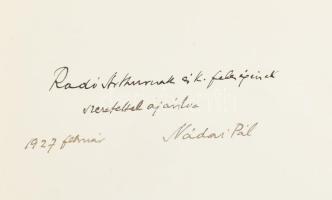 Radó Arthurnak és k. feleségének
szeretettel ajánlva
1927 február Nádai Pál